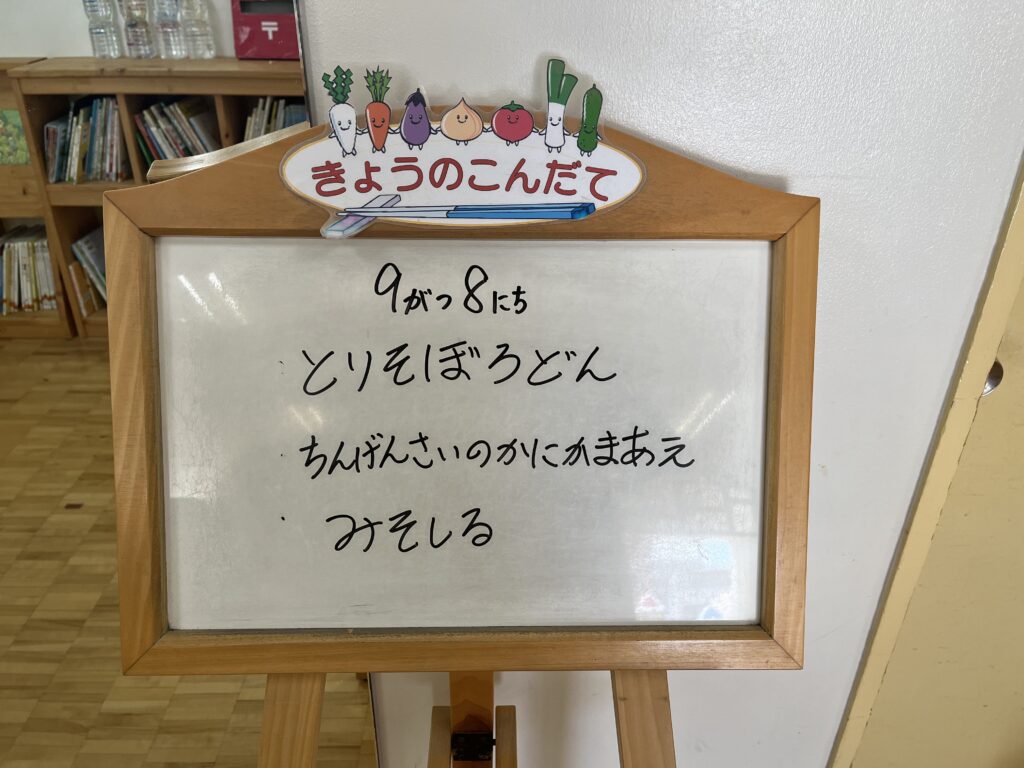 きょうのこんだて
9がつ8にち
とりそぼろどん
ちんげんさいのかにかまあえ
みそしる